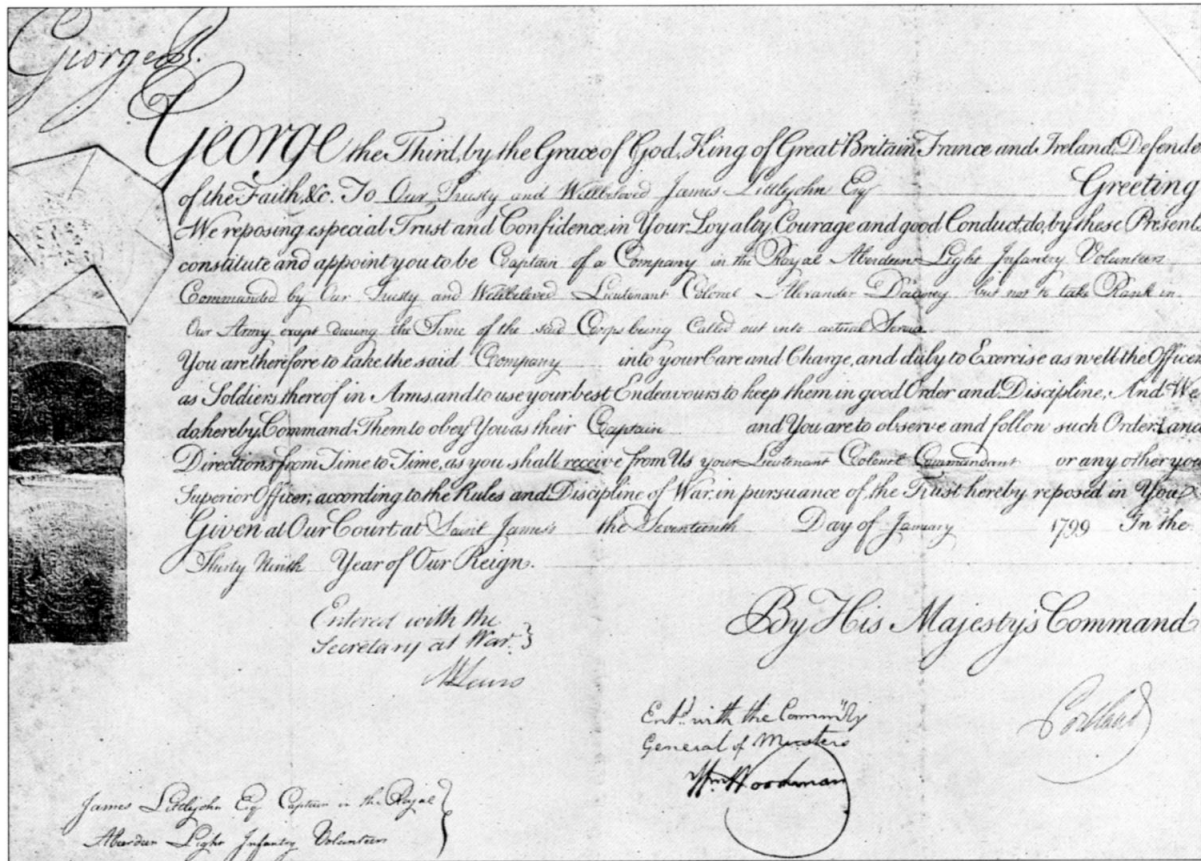 George R.
George the Third, by the Grace of God, King of Great Britain France and Ireland, Defende
of the Faith, &c. To Our Trusty and Wellbeloved James Littlejohn Esq Greeting
We reposing especial Trust and Confidence in Your Loyalty, Courage and good Conduct, do, by these Presents
constitute and appoint you to be Captain of a Company in the Royal Aberdeen Light Infantry Volunteers
Commanded by Our Trusty and Wellbeloved Lieutenant Colonel Alexander but not to take Rank in
Our Army except during the Time of the said Corps being Called out into actual Service
You are therefore to take the said Company into your Care and Charge, and duly to Exercise as well the Officer
as Soldiers thereof in Arms, and to use your best Endeavours to keep them in good Order and Discipline, And We
do hereby Command Them to obey You as their Captain and You are to observe and follow such Orders and
Directions from Time to Time, as you shall receive from Us your Lieutenant Colonel Commandant or any other you
Superior Officer, according to the Rules and Discipline of War, in pursuance of the Trust hereby reposed in You
Given at Our Court at Saint James's the Seventeenth Day of January 1799 In the
Thirty Ninth Year of Our Reign.
By His Majesty's Command
Entered with the
Secretary at War.
MLewis
Portland
Entd. with the Commy
General of Musters
Wm Woodman
James Littlejohn Esq Captain in the Royal
Aberdeen Light Infantry Volunteers